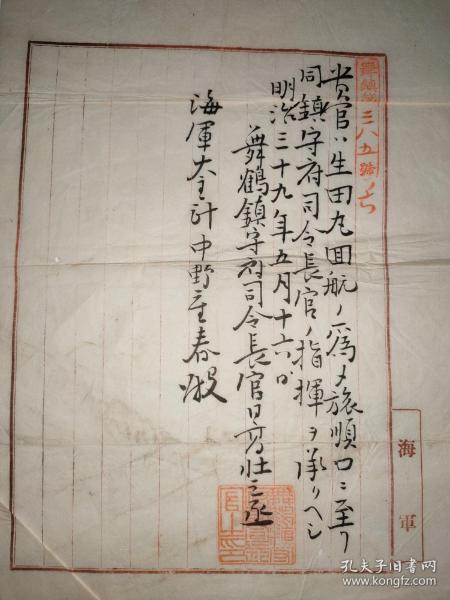 舞鎮第三八五號ノ七
貴官ハ生田丸回航ノ爲メ旅順口ニ至リ
同鎮守府司令長官ノ指揮ヲ承リヘシ
明治三十九年五月十六日
舞鶴鎮守府司令長官日高壯之丞
海軍大主計中野重春殿
海軍
孔夫子旧书网
www.kongfz.com